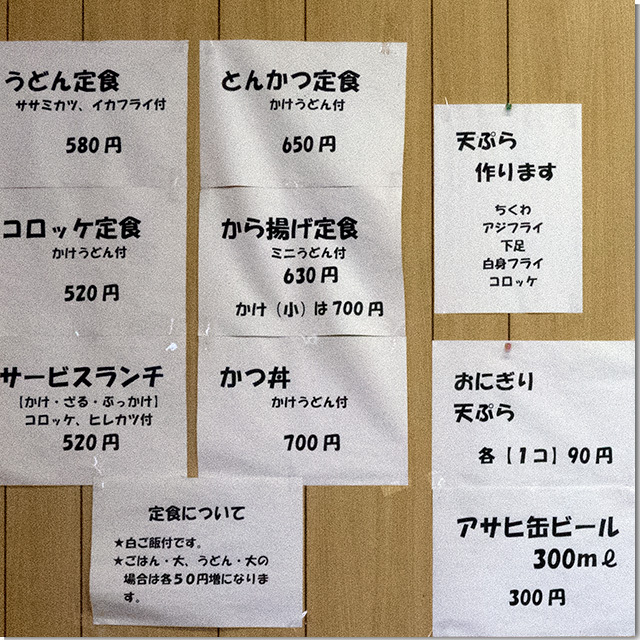 うどん定食
ササミカツ、イカフライ付
580円
コロッケ定食
かけうどん付
520円
サービスランチ
【かけ・ざる・ぶっかけ】
コロッケ、ヒレカツ付
520円
とんかつ定食
かけうどん付
650円
から揚げ定食
ミニうどん付
630円
かけ（小）は700円
かつ丼
かけうどん付
700円
定食について
★白ご飯付です。
★ごはん・大、うどん・大の
場合は各50円増になりま
す。
天ぷら
作ります
ちくわ
アジフライ
下足
白身フライ
コロッケ
おにぎり
天ぷら
各【1コ】90円
アサヒ缶ビール
300mℓ
300円